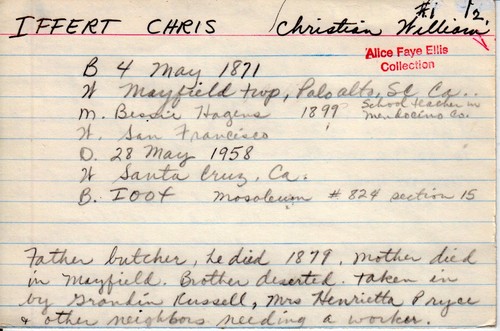 IFFERT CHRIS Christian William #1 12.
Alice Faye Ellis
Collection
B 4 May 1871
W Mayfield twp, Palo alto, SC Ca..
M. Bessie Hagens 1899 School teacher in
Mendocino Co.
W. San Francisco
D. 28 May 1958
W Santa Cruz, Ca.
B. IOOF Mosoleum #824 section 15
Father butcher, he died 1879, Mother died
in Mayfield. Brother deserted. Taken in
by Grandin Russell, Mrs Henrietta Pryce
& other neighbors needing a worker.